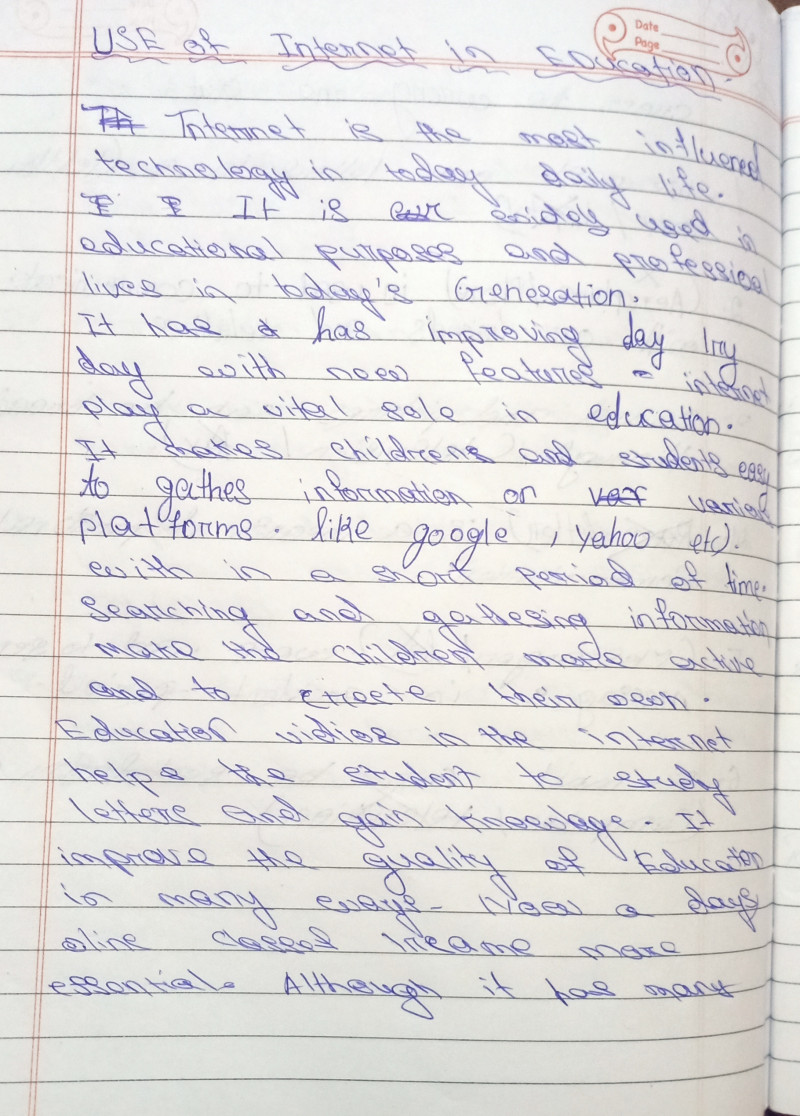 Date
Page
USE of Internet in Education.
Internet is the most influened
technology in today daily life.
It is widely used in
educational purposes and professional
lives in today's Generation.
It has has improving day by
day with new features - internet
play a vital role in education.
It makes childrens and students easy
to gather information on various
platforms. like google, yahoo etc).
with in a short period of time.
Searching and gathering information
make the children more active
and to create their own.
Education vidios in the internet
helps the student to study
letters and gain knowledge. It
improve the quality of Education
in many ways. Now a days
oline classes became more
essential. Although it has many